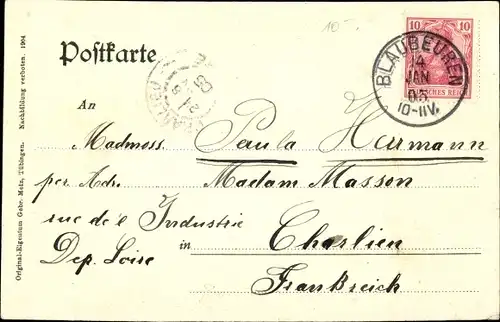 10-
Postkarte
BLAUBEUREN
14
JAN
05
10-11V.
10
DEUTSCHES REICH
An
Madmoss. Paula Hermann
per Adr. Madam Masson
rue de l Industrie
in Charlien
Dep. Loire
Frankreich
Original-Eigentum Gebr. Metz, Tübingen. Nachbildung verboten. 1904